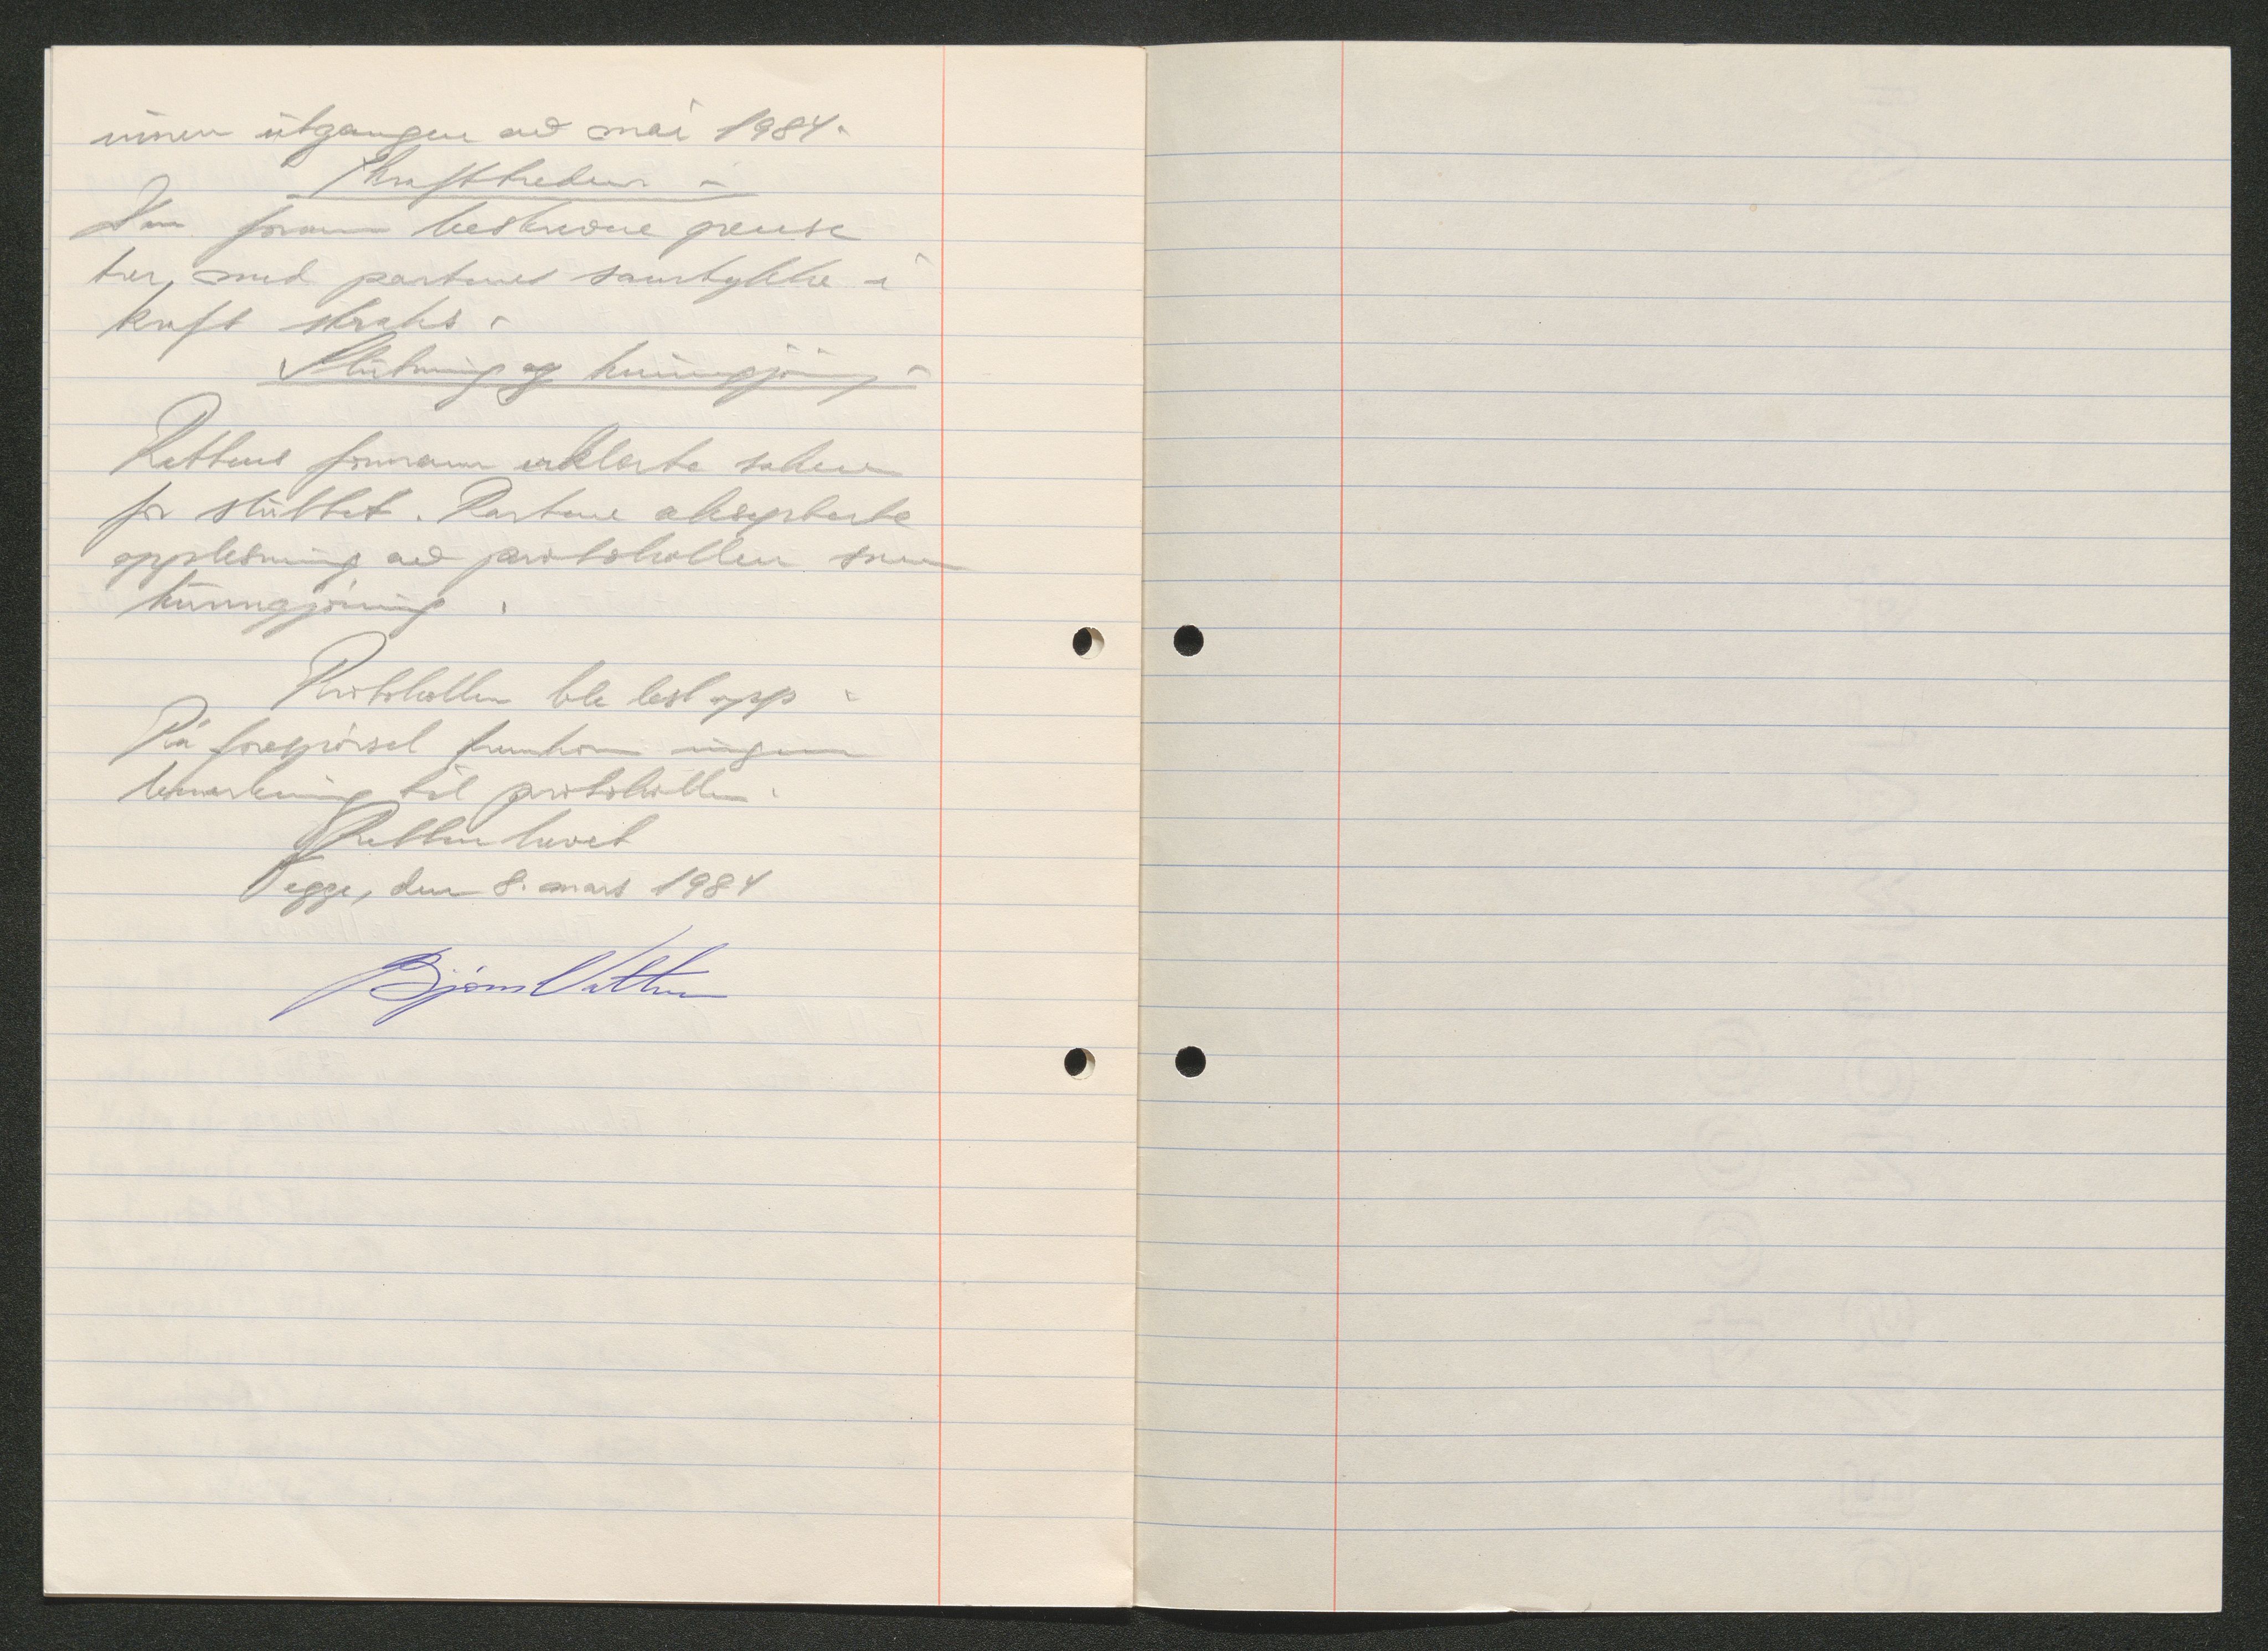 innen utgangen av mai 1984.
Ikrafttreden.
Den foran beskrevne grense
trer, med partenes samtykke i
kraft straks.
Slutning og kunngjöring.
Rettens formann erklærte saken
for sluttet. Partene aksepterte
opplesning av protokollen som
kunngjöring.
Protokollen ble lest opp.
På forespörsel fremkom ingen
bemerkning til protokollen.
Retten hevet
Egge, den 8. mars 1984
Björn